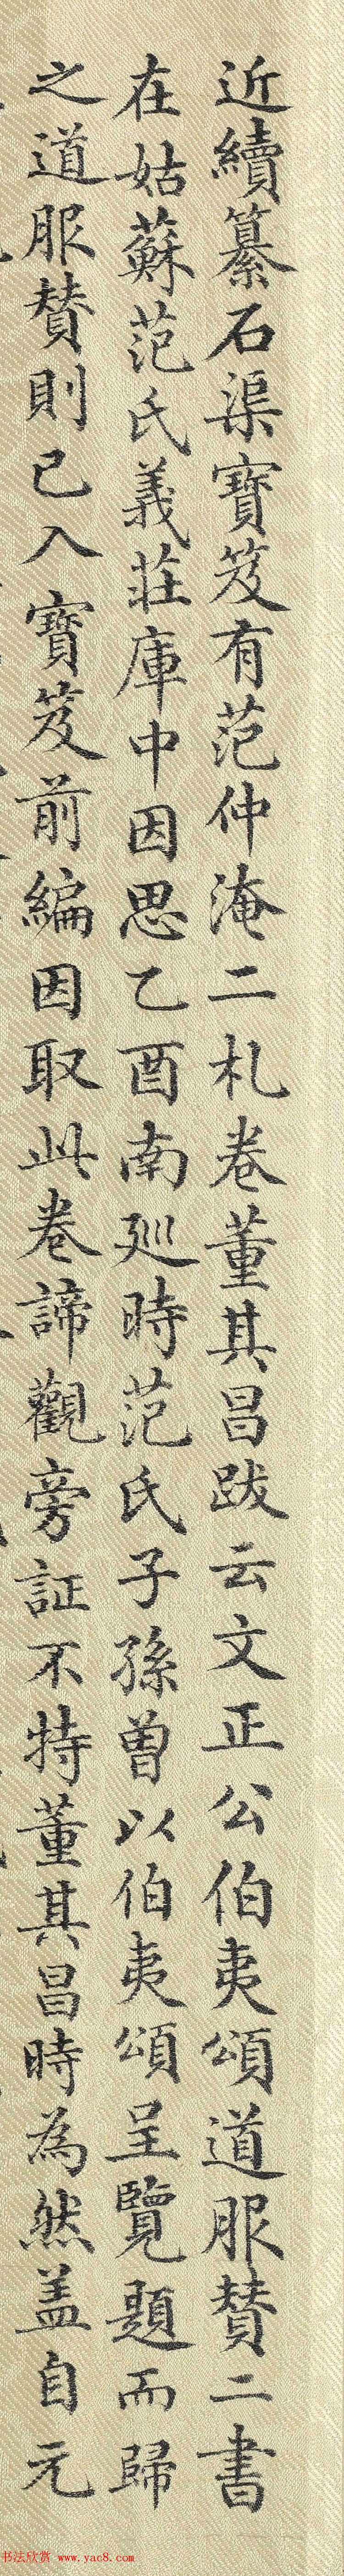 近續纂石渠寶笈有范仲淹二札卷董其昌跋云文正公伯夷頌道服賛二書
在姑蘇范氏義莊庫中因思乙酉南廵時范氏子孫曾以伯夷頌呈覽題而歸
之道服賛則已入寶笈前編因取此卷諦觀旁証不特董其昌時為然盖自元
书法欣赏 www.yac8.com